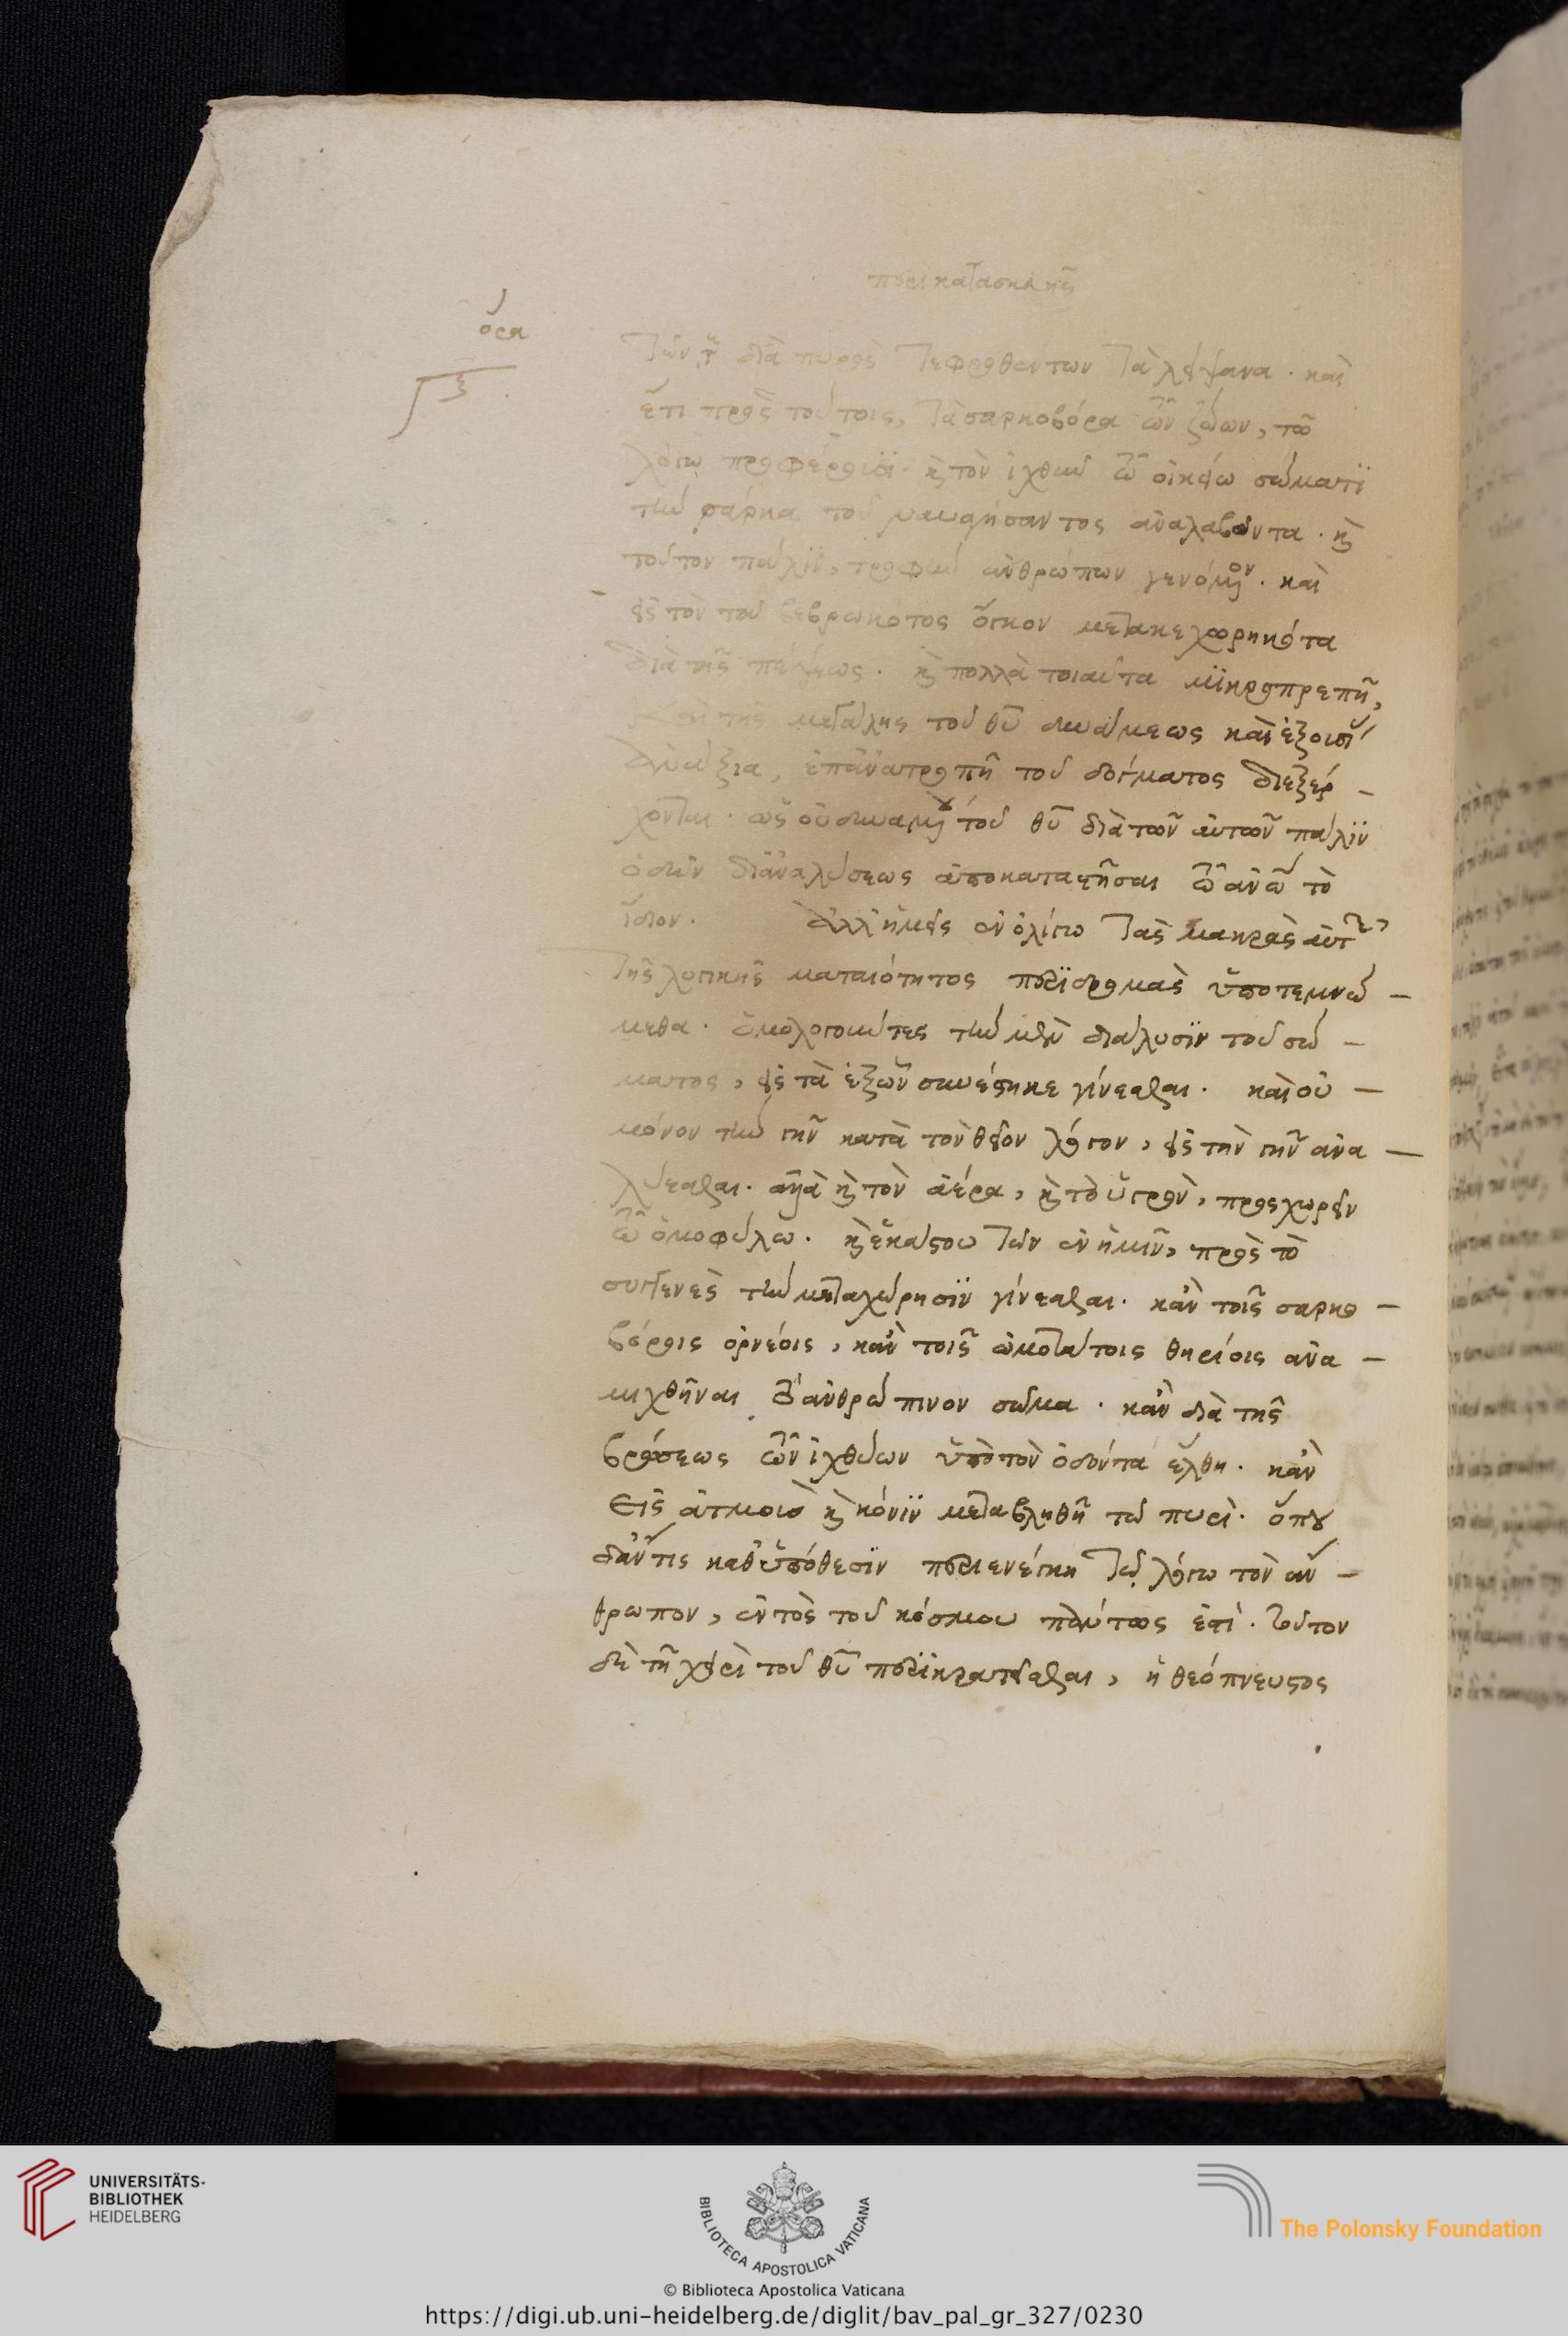 περὶ κατασκευῆς
ὅρα
ξ
τῶν τε διὰ πυρὸς τεφρωθέντων τὰ λείψανα · καὶ
ἔτι πρὸς τούτοις, τὰ σαρκοβόρα τῶν ζώων, τῶ
λόγω προφέρουσι · καὶ τὸν ἰχθὺν τῶ οἰκείω σώματϊ
τὴν σάρκα τοῦ ναυαγήσαντος ἀναλαβόντα · καὶ
τοῦτον πάλϊν, τροφὴν ἀνθρώπων γενόμενον · καὶ
εἰς τὸν τοῦ βεβρωκότος ὄγκον μετακεχωρηκότα
διὰ τῆς πέψεως · καὶ πολλὰ τοιαῦτα μϊκροπρεπῆ,
καὶ τῆς μεγάλης τοῦ θῦ δυνάμεως καὶ ἐξουσί
ἀνάξια, ἐπ' ἀνατροπῆ τοῦ δόγματος διεξέρ –
χονται · ὡς οὐ δυναμένου τοῦ θῦ διὰ τῶν αὐτῶν πάλϊν
ὁδῶν δι' ἀναλύσεως ἀποκαταστῆσαι τῶ ἀνῶ τὸ
ἴδιον · Ἀλλ' ἡμεῖς ἐν ὀλίγω τὰς μακρὰς αὐτῶν
τῆς λογικῆς ματαιότητος περϊδρομὰς ὑποτεμνώ –
μεθα · ὁμολογοῦντες τὴν μὲν διάλυσϊν τοῦ σώ –
ματος, εἰς τὰ ἐξ ὧν συνέστηκε γίνεσθαι · καὶ οὐ –
μόνον τὴν γῆν κατὰ τὸν θεῖον λόγον, εἰς τὴν γῆν ἀνα –
λύεσθαι · ἀλλὰ καὶ τὸν ἀέρα, καὶ τὸ ὑγρὸν, προςχωρεῖν
τῶ ὁμοφύλω · καὶ ἑκάστου τῶν ἐν ἡμῖν, πρὸς τὸ
συγγενὲς τὴν μεταχώρησϊν γίνεσθαι · κἂν τοῖς σαρκο –
βόροις ὀρνέοις, κἂν τοῖς ὠμοτάτοις θηρίοις ἀνα –
μιχθῆναι τὸ ἀνθρώπινον σῶμα · κἂν διὰ τῆς
βρώσεως τῶν ἰχθύων ὑπὸ τὸν ὀδόντα ἔλθη · κἂν
εἰς ἀτμοὺς καὶ κόνϊν μεταβληθῆ τῶ πυρὶ · ὅπου
δ' ἄν τις καθ' ὑπόθεσϊν περιενέγκη τῶ λόγω τὸν ἄν –
θρωπον, ἐντὸς τοῦ κόσμου πάντως ἐστὶ · τοῦτον
δὲ τῆ χειρὶ τοῦ θῦ περϊκρατεῖσθαι, ἡ θεόπνευστος
UNIVERSITÄTS-
BIBLIOTHEK
HEIDELBERG
BIBLIOTECA APOSTOLICA VATICANA
The Polonsky Foundation
© Biblioteca Apostolica Vaticana
https://digi.ub.uni-heidelberg.de/diglit/bav_pal_gr_327/0230